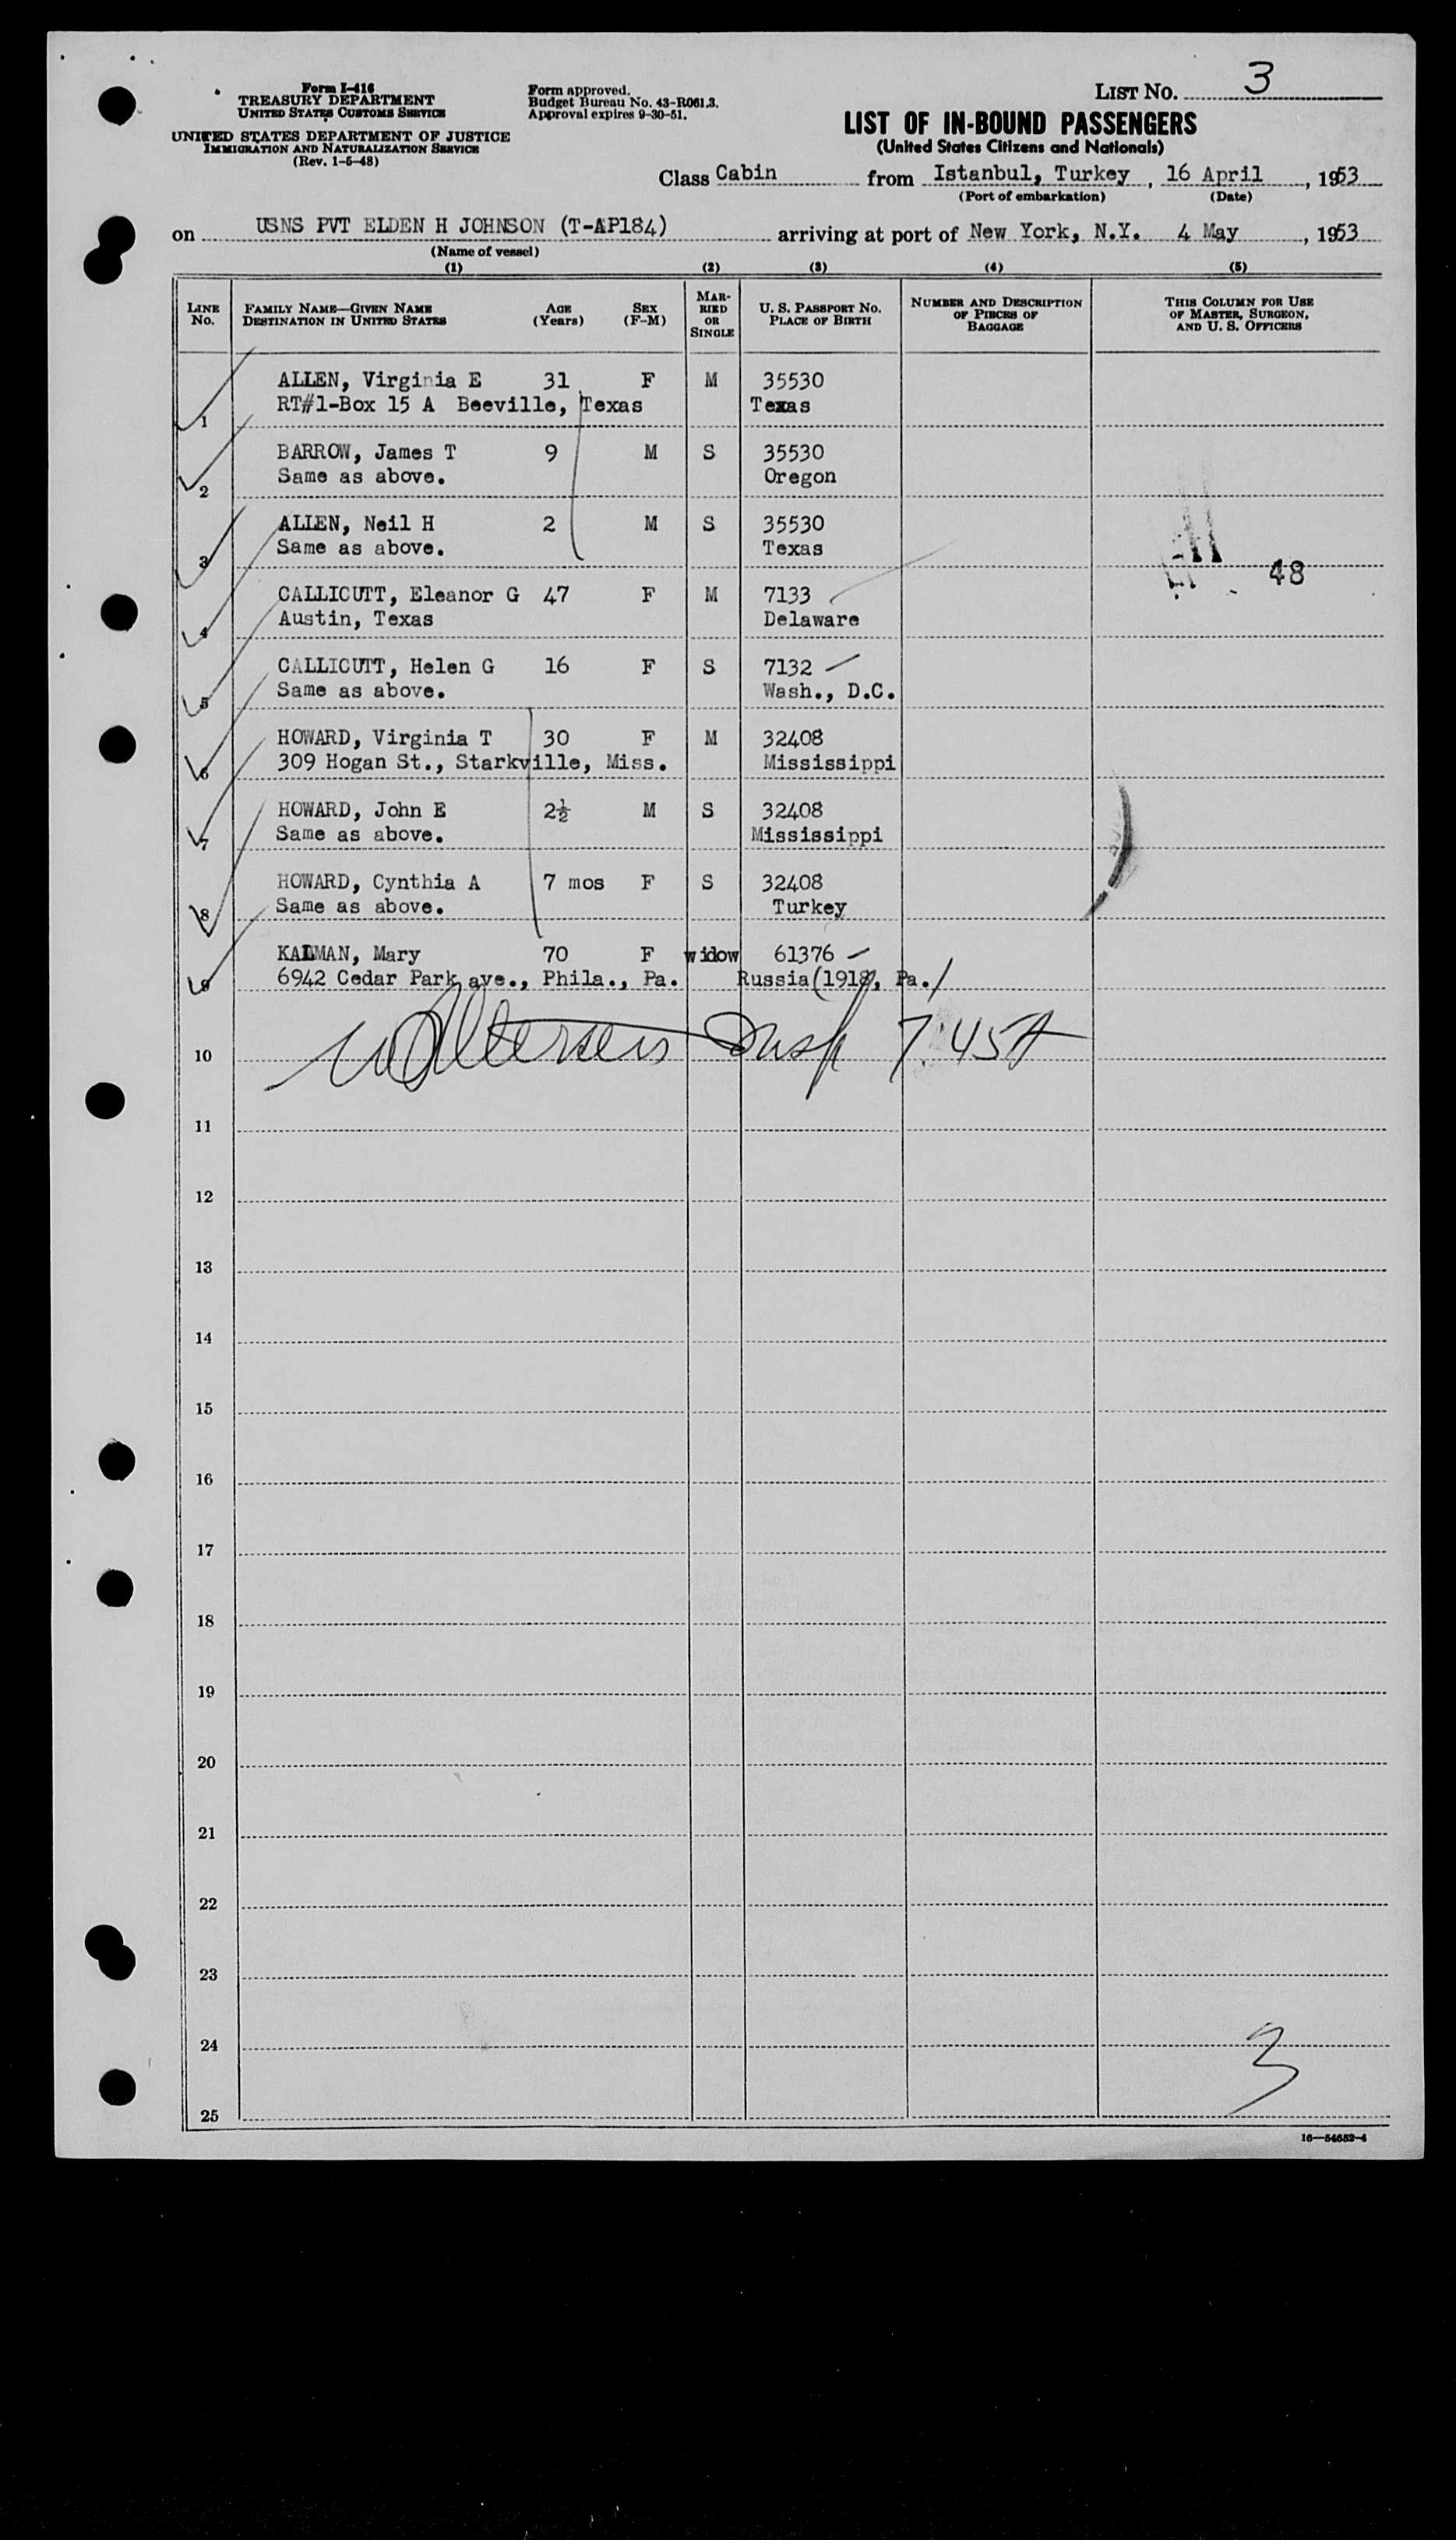 Form I-416
TREASURY DEPARTMENT
UNITED STATES CUSTOMS SERVICE
UNITED STATES DEPARTMENT OF JUSTICE
IMMIGRATION AND NATURALIZATION SERVICE
(Rev. 1-5-48)
Form approved.
Budget Bureau No. 43-R061.3.
Approval expires 9-30-51.
LIST NO. 3
LIST OF IN-BOUND PASSENGERS
(United States Citizens and Nationals)
Class Cabin from Istanbul, Turkey, 16 April, 1953
(Port of embarkation) (Date)
on USNS PVT ELDEN H JOHNSON (T-AP184) arriving at port of New York, N.Y. 4 May, 1953
(Name of vessel)
(1) (2) (3) (4) (5)
LINE No. FAMILY NAME—GIVEN NAME DESTINATION IN UNITED STATES AGE (Years) SEX (F-M) MARRIED OR SINGLE U. S. PASSPORT NO. PLACE OF BIRTH NUMBER AND DESCRIPTION OF PIECES OF BAGGAGE THIS COLUMN FOR USE OF MASTER, SURGEON, AND U. S. OFFICERS
ALLEN, Virginia E 31 F M 35530
1 RT#1-Box 15 A Beeville, Texas Texas
BARROW, James T 9 M S 35530
2 Same as above. Oregon
ALLEN, Neil H 2 M S 35530
3 Same as above. Texas
48
CALLICUTT, Eleanor G 47 F M 7133
4 Austin, Texas Delaware
CALLICUTT, Helen G 16 F S 7132
5 Same as above. Wash., D.C.
HOWARD, Virginia T 30 F M 32408
6 309 Hogan St., Starkville, Miss. Mississippi
HOWARD, John E 2½ M S 32408
7 Same as above. Mississippi
HOWARD, Cynthia A 7 mos F S 32408
8 Same as above. Turkey
KALMAN, Mary 70 F widow 61376
9 6942 Cedar Park ave., Phila., Pa. Russia(1918, Pa.)
10 Insp 7:45A
11
12
13
14
15
16
17
18
19
20
21
22
23
24
3
25
16—54652-4